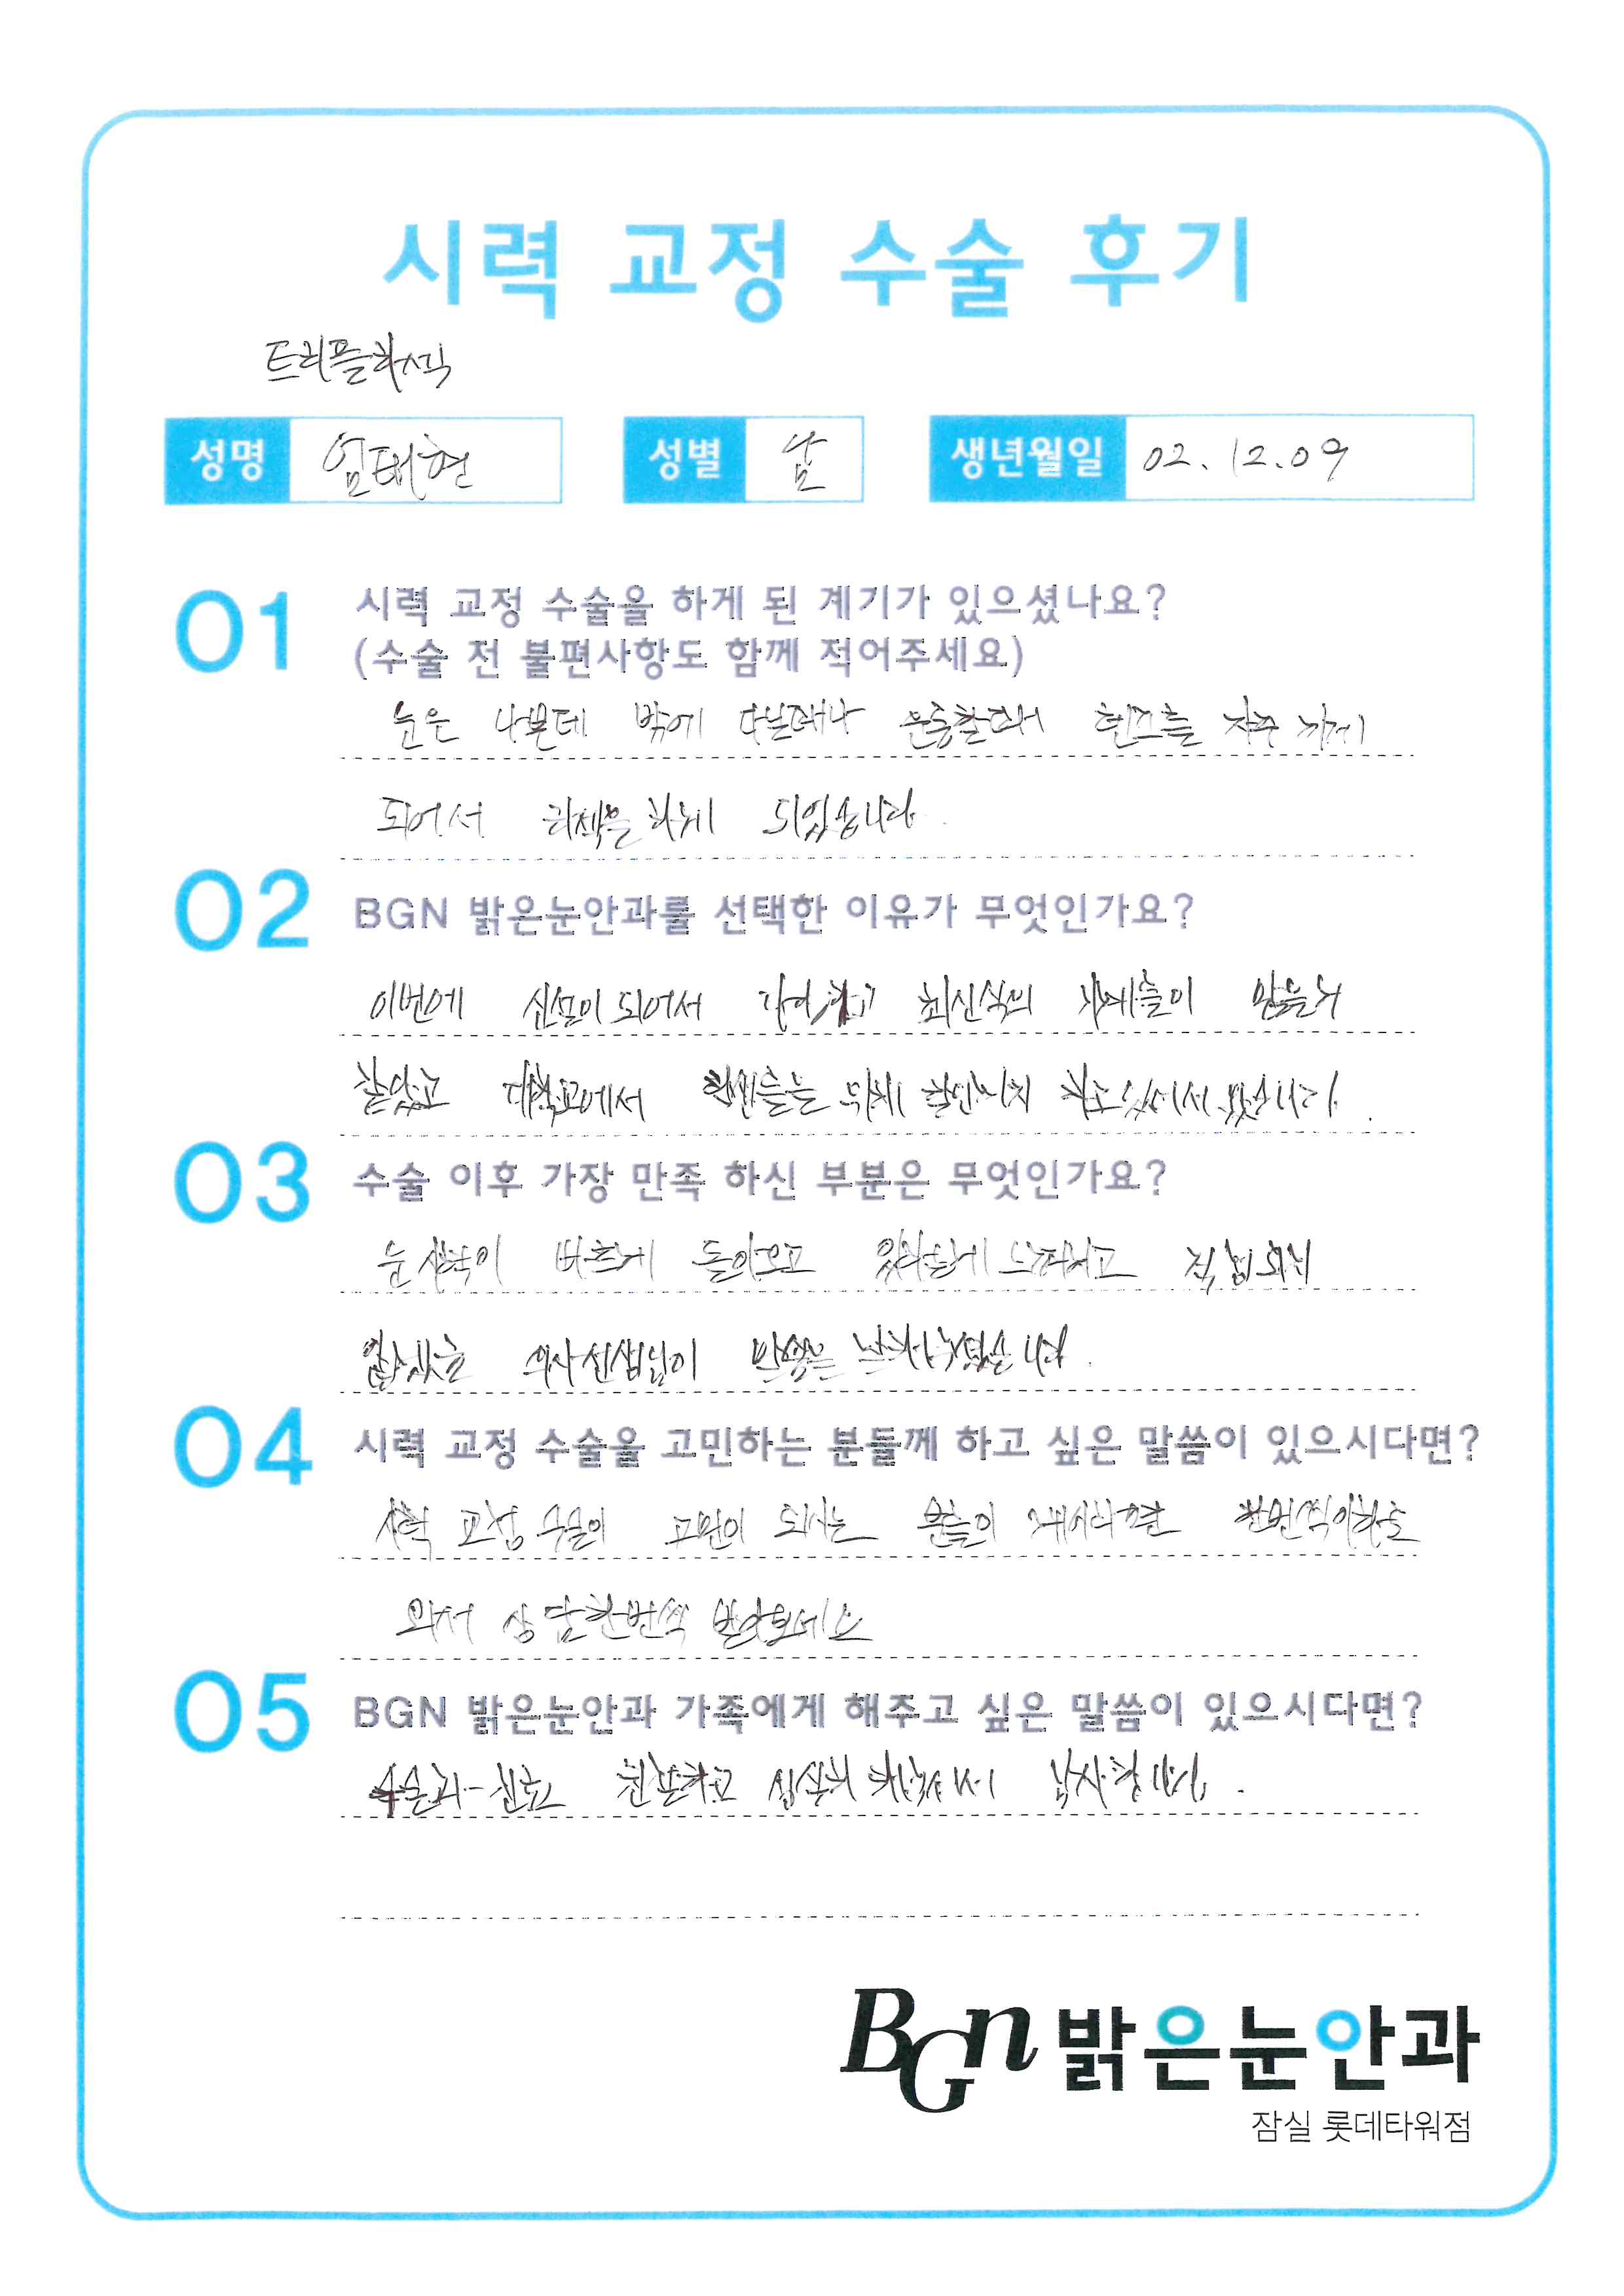 시력 교정 수술 후기
트리플라식
성명 엄태현 성별 남 생년월일 02.12.09
01 시력 교정 수술을 하게 된 계기가 있으셨나요?
(수술 전 불편사항도 함께 적어주세요)
눈은 나쁜데 밖에 다닐때나 운동할때 렌즈를 자주 끼게
되어서 라섹을 하게 되었습니다.
02 BGN 밝은눈안과를 선택한 이유가 무엇인가요?
이번에 신설이 되어서 최신식의 기계들이
같았고 대학교에서 학생들을 위해 할인까지 하고 있어서
03 수술 이후 가장 만족 하신 부분은 무엇인가요?
눈 시력이 빠르게 돌아오고 느껴지고
의사선생님이
04 시력 교정 수술을 고민하는 분들께 하고 싶은 말씀이 있으시다면?
시력 교정 수술이 고민이 되시는 분들이 한번씩이라도
와서 상담한번씩 받아보세요
05 BGN 밝은눈안과 가족에게 해주고 싶은 말씀이 있으시다면?
친절하고 감사합니다.
BGn 밝은눈안과
잠실 롯데타워점